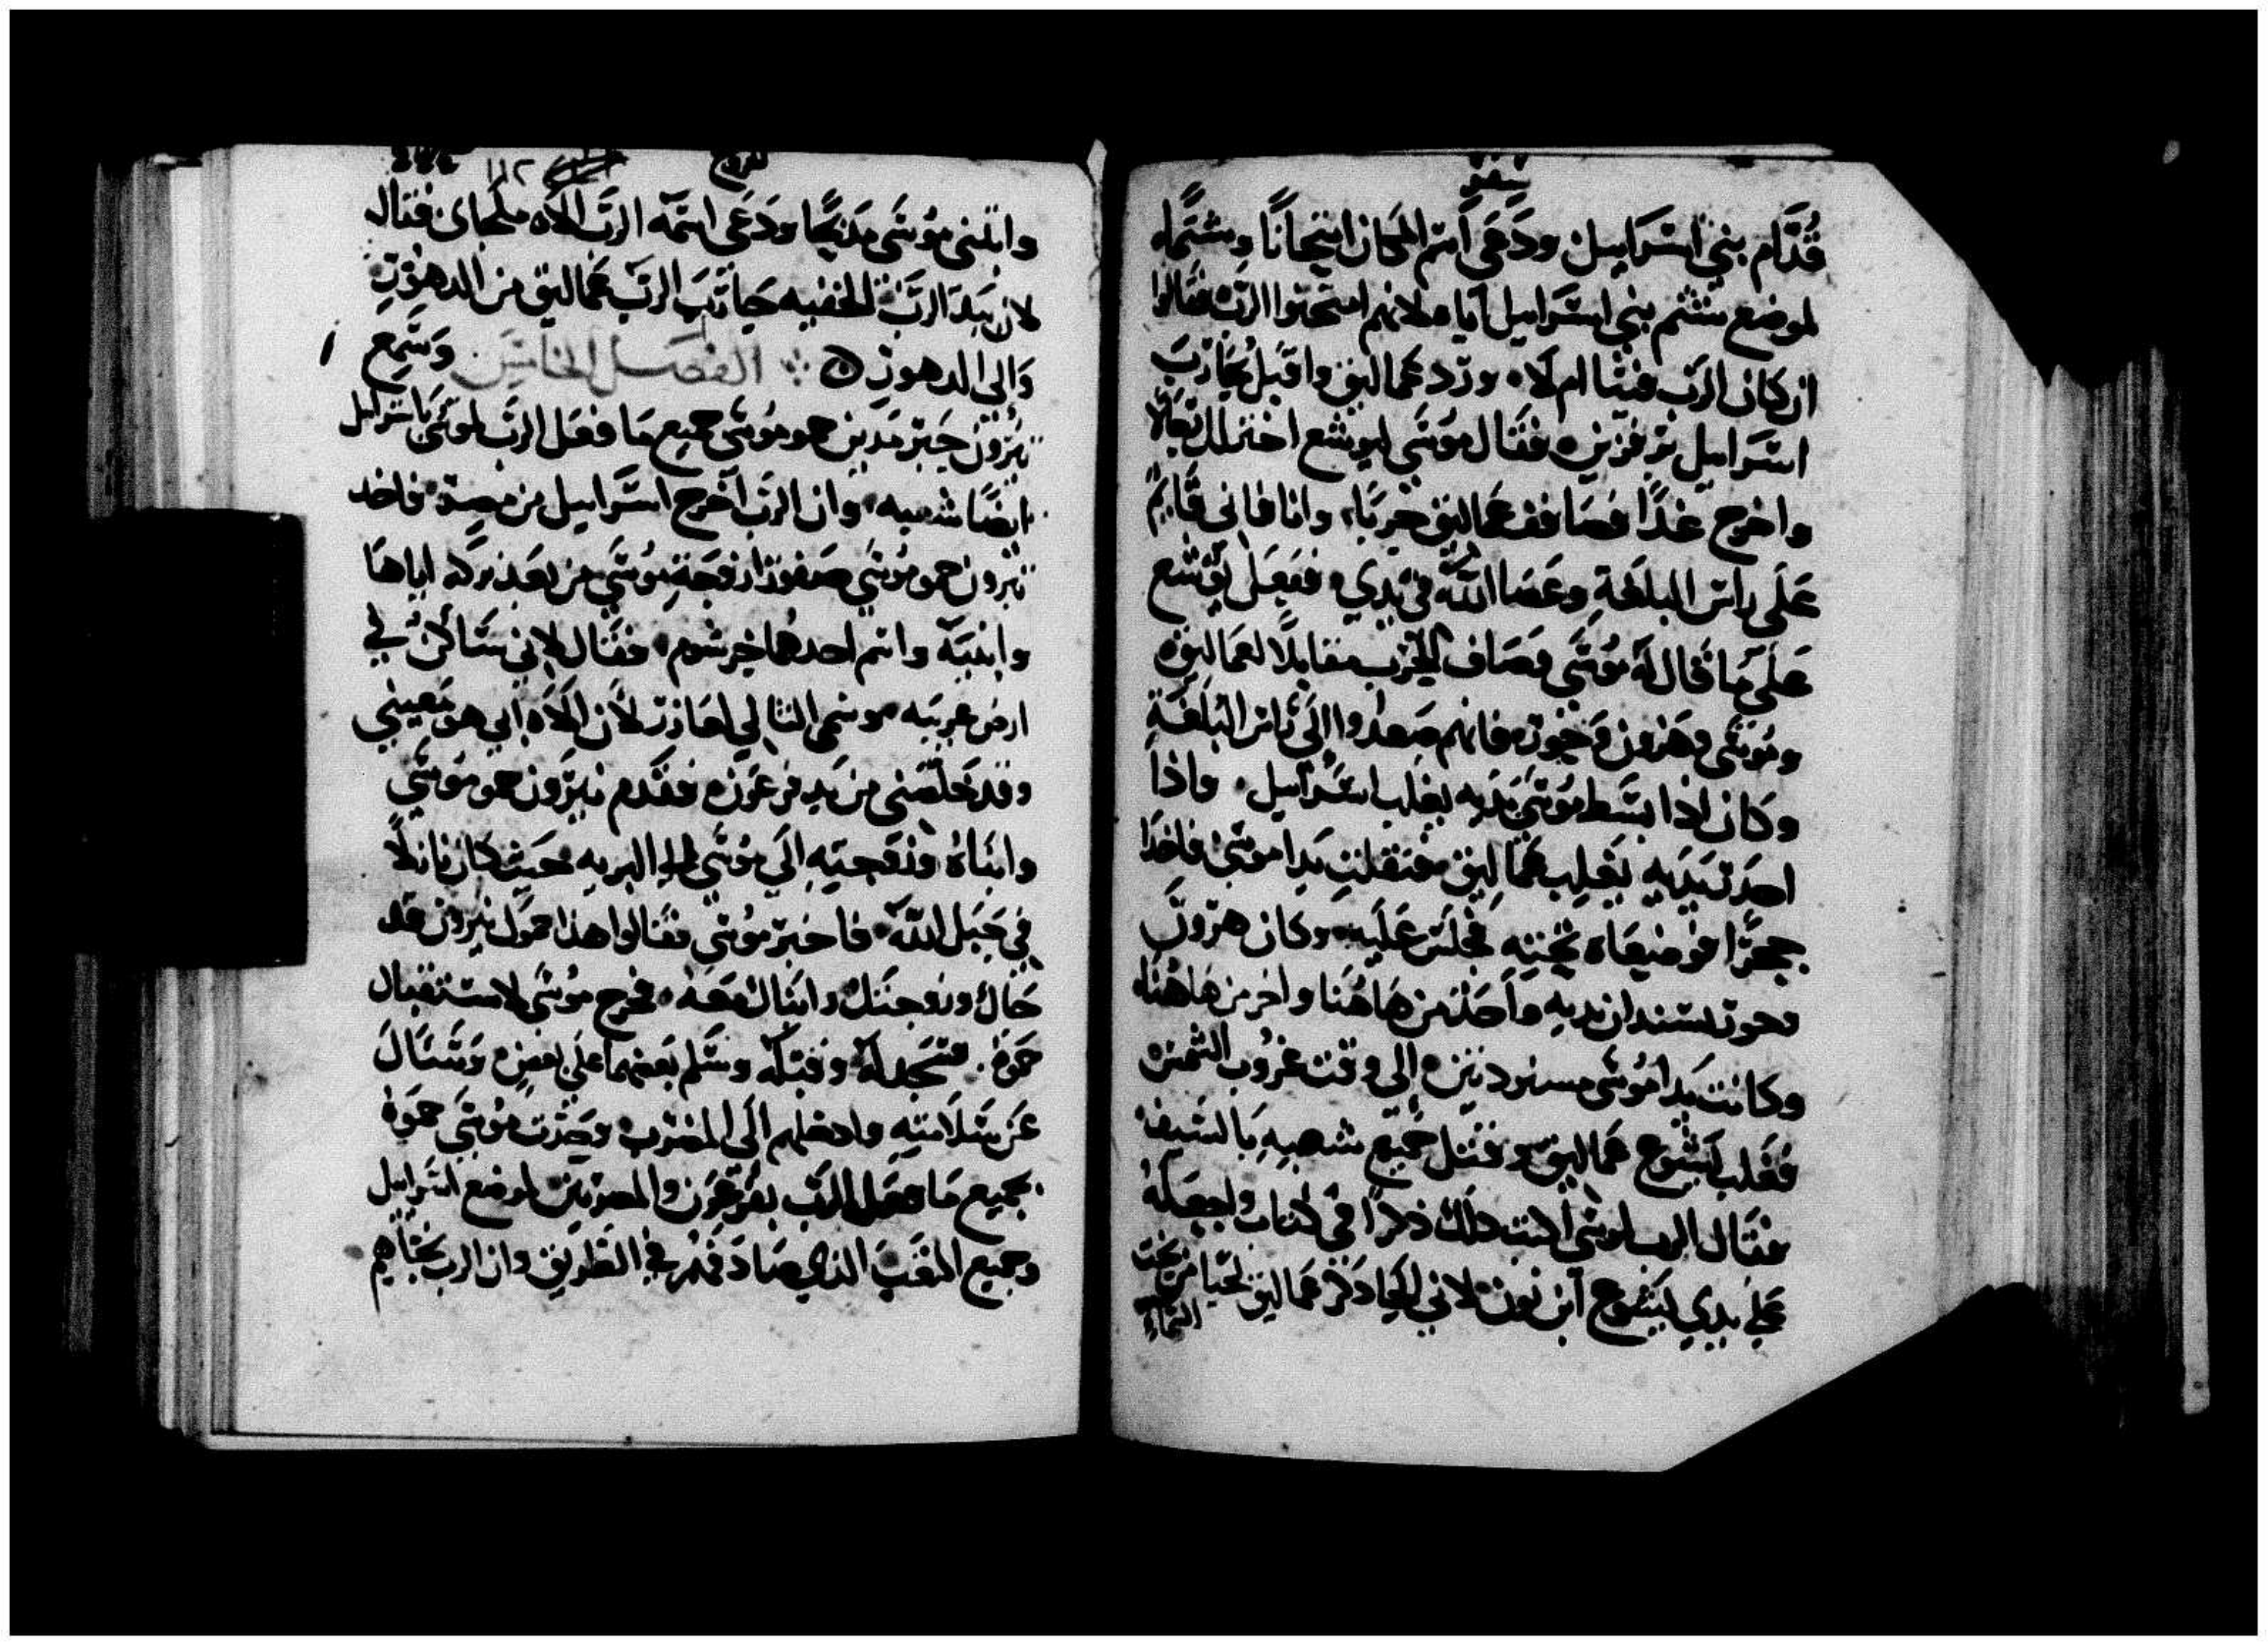 سفر
قُدَّام بني اسرَاييل ودَعَي اسم المكان امتحانًا وشتمًا
لموضع شتم بني اسرَاييل اياه لانهم امتحنوا الرب فقالوا
ان كان الرَب فينا ام لا وورد عماليق واقبل يحَارب
اسرَاييل برفزين فقال موسَي ليوشع اختر لك رجالا
واخرج غدًا فصَافف عماليق حربًا وانا فاني قايم
عَلَي راس البلغة وعَصَا اللَّه في يدي ففعَل يوشع
عَلَي مَا قال له موسَي وصَاف للحَرب مقابلًا لعماليق
وموسَي وهَرون وحور فانهم صعدوا الَي راس البلغة
وكان اذا بسَط موسَي يَديه يغلب اسرَاييل واذا
احدَر يَديه يَغلِب عماليق فثقلت يَدا موسَي فاخذا
حجرًا فوضعَاه تحته فجلسَ عَلَيه وكان هرون
وحور يسندان يديه واحَد من هَاهُنا واخر من هَاهُنا
وكانت يَدا موسَي مسنودتين الي وقت غروب الشمس
فغَلب يَشوع عماليق وقتل جميع شعبه بالسَيف
فقال الرب لموسَي اكتب ذلك ذكرًا في كتاب واجعله
علي يدي يَشوع ابن نون لاني امحيا ذكر عماليق محيا من تحت
السماء
خروج
١١٢
وابتني موسَي مَذبحًا ودَعَي اسمه الرب الاه ملجاي فقال
لان بيَد الرَب الخفيه حَارَب الرَب عماليق من الدهور
وَالي الدهور الفصَل الخامس وَسَمِع
يثرون حَبر مَدين حمو موسَي جميع مَا فعَل الرَب لموسَي باسراييل
ايضًا شعبه وان الرَب اخرج اسرَاييل من مصر فاخد
يثرون حمو موسَي صَفورا زوجَة موسَي من بعَد تركه اياهَا
وابنيَه واسم احدهما جرشوم فقال لاني سَاكن في
ارض غريبَه وسمي الثاني العازر لان الاه ابي هو مُعيني
وقد خلصَني من يَد فرعَون فقدم يثرون حمو موسَي
وابنَاهُ وزوجته الَي موسَي الي البريه حَيث كان نازلًا
في جَبَل اللَّه فاخبر موسَي فقالوا هذا حموَك يثرون قد
جَاك وزوجتك وابنَاك معَه فخرج موسَي لاستقبال
حموَهُ فسَجد له وقبله وسَلم بَعضهما علَي بعض وَسَال
عَن سَلامَته وادخلهم الَي المضرب وحَدث موسَي حموَهُ
بجميع مَا فعَل الرَب بفرعَون والمصريين لموضع اسرَاييل
وجميع التعَب الذي صَادَفهم في الطريق وان الرب نجَاهم